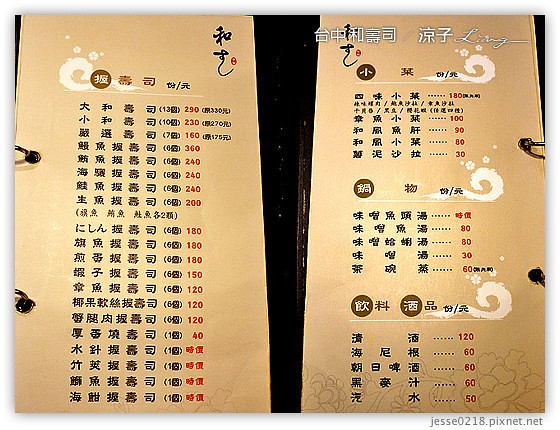 和すし
握壽司 份/元
大和壽司 (13個) 290 (原330元)
小和壽司 (10個) 230 (原270元)
嚴選壽司 (7個) 160 (原175元)
鰻魚握壽司 (6個) 360
鮪魚握壽司 (6個) 240
海膽握壽司 (6個) 240
鮭魚握壽司 (6個) 240
生魚握壽司 (6個) 200
(旗魚 鮪魚 鮭魚各2顆)
にしん握壽司 (6個) 180
旗魚握壽司 (6個) 180
煎香握壽司 (6個) 180
蝦子握壽司 (6個) 150
章魚握壽司 (6個) 120
椰果軟絲握壽司 (6個) 120
蟹腿肉握壽司 (6個) 120
厚香燒壽司 (1個) 40
水針握壽司 (1個) 時價
竹莢握壽司 (1個) 時價
鰤魚握壽司 (1個) 時價
海鮒握壽司 (1個) 時價
和すし
台中和壽司 涼子 Ling
小菜 份/元
四味小菜 ······ 180
辣味螺肉 / 鮑魚沙拉 / 章魚沙拉
干貝唇 / 黑豆 / 櫻花蝦 (任選四種)
章魚小菜 ······ 100
和風魚肝 ······ 90
和風小菜 ······ 80
薑泥沙拉 ······ 30
鍋物 份/元
味噌魚頭湯 ······ 時價
味噌魚湯 ······ 80
味噌蛤蜊湯 ······ 80
味噌湯 ······ 30
茶碗蒸 ······ 60
飲料酒品 份/元
清酒 ······ 120
海尼根 ······ 60
朝日啤酒 ······ 60
黑麥汁 ······ 60
汽水 ······ 50
jesse0218.pixnet.net